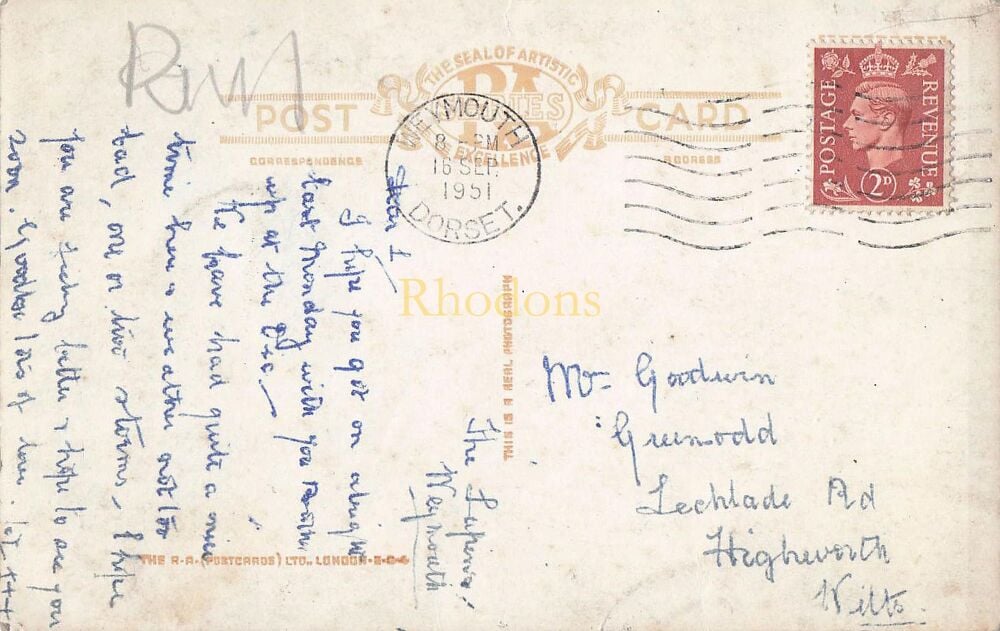 Ruf
THE SEAL OF ARTISTIC
RA
SERIES
EXCELLENCE
POST CARD
CORRESPONDENCE
ADDRESS
WEYMOUTH
8 PM
16 SEP.
1951
DORSET.
POSTAGE
REVENUE
2D
Rhodons
The
Weymouth
Dear L
I hope you got on alright
last Monday with you
up at the
We have had quite a nice
time here weather not too
bad, one or two storms. I hope
you are feeling better & hope to see you
soon.
lots of love.
THIS IS A REAL PHOTOGRAPH
Mrs Goodwin
Lechlade Rd
Highworth
Wilts.
THE R.A. (POSTCARDS) LTD., LONDON-E-C-4